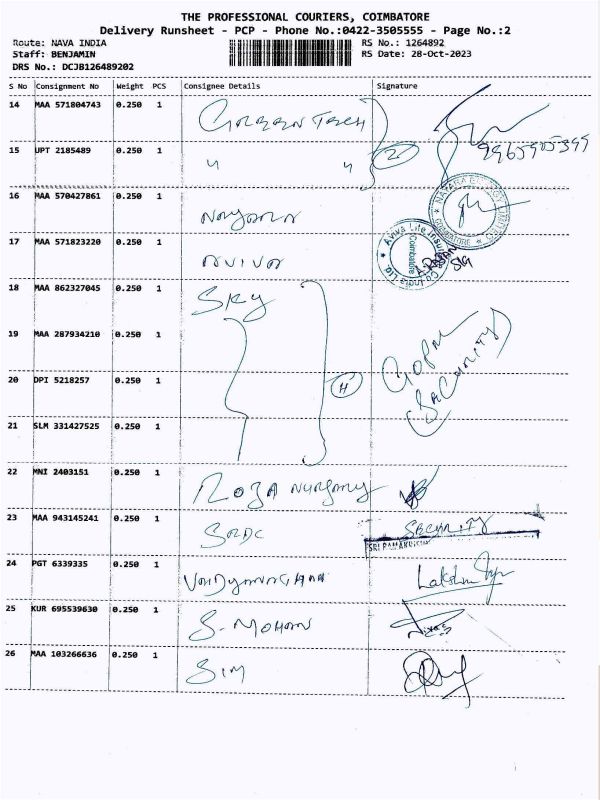 THE PROFESSIONAL COURIERS, COIMBATORE
Delivery Runsheet - PCP - Phone No.:0422-3505555 - Page No.:2
Route: NAVA INDIA RS No.: 1264892
Staff: BENJAMIN RS Date: 28-Oct-2023
DRS No.: DCJB126489202
S No Consignment No Weight PCS Consignee Details Signature
14 MAA 571804743 0.250 1
15 UPT 2185489 0.250 1 " " 2
16 MAA 570427861 0.250 1
17 MAA 571823220 0.250 1 AVIVA Aviva Life Coimbatore
18 MAA 862327045 0.250 1 SKY
19 MAA 287934210 0.250 1 GOPAL
20 DPI 5218257 0.250 1 SECURITY
21 SLM 331427525 0.250 1
22 MNI 2403151 0.250 1
23 MAA 943145241 0.250 1 SECURITY
24 PGT 6339335 0.250 1
25 KUR 695539630 0.250 1 S. MOHAN
26 MAA 103266636 0.250 1 SIM